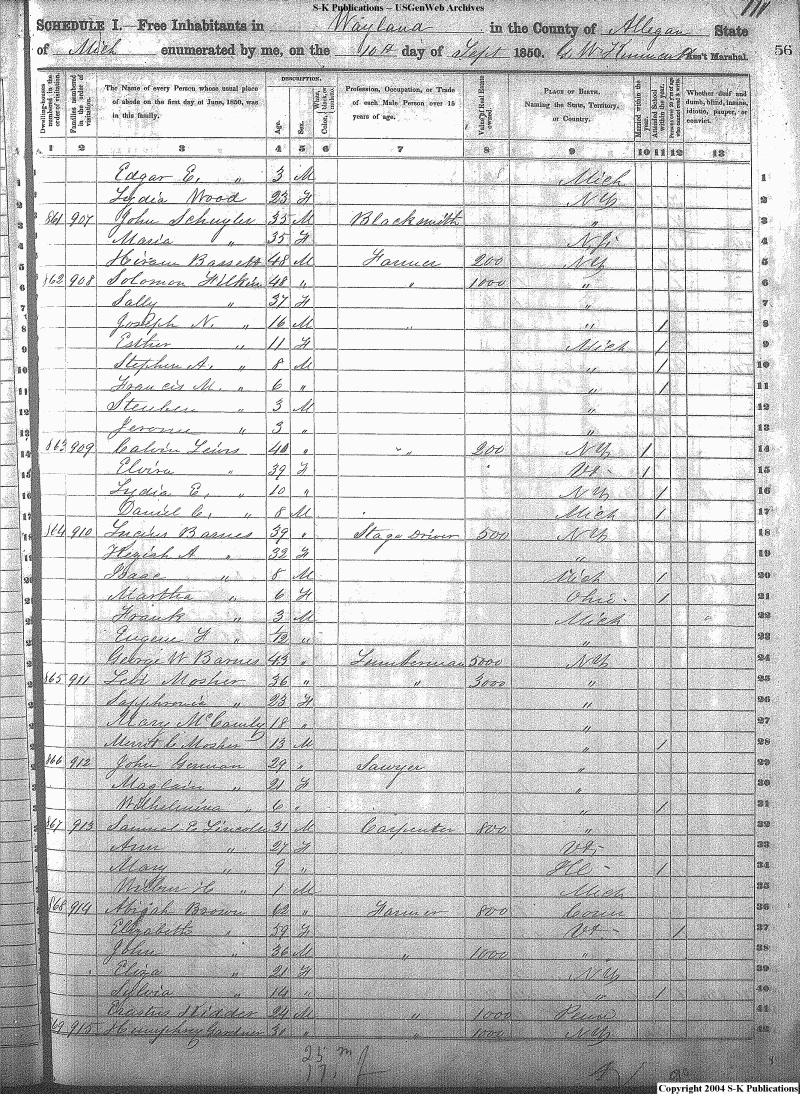 S-K Publications – USGenWeb Archives
SCHEDULE I.—Free Inhabitants in Wayland in the County of Allegan State
of Mich enumerated by me, on the 10th day of Sept 1850. Ass't Marshal. 56
DESCRIPTION.
Dwelling-houses numbered in the order of visitation.
Families numbered in the order of visitation.
The Name of every Person whose usual place of abode on the first day of June, 1850, was in this family.
Age.
Sex.
Color, White, black, or mulatto.
Profession, Occupation, or Trade of each Male Person over 15 years of age.
Value of Real Estate owned.
PLACE OF BIRTH. Naming the State, Territory, or Country.
Married within the year.
Attended School within the year.
Whether deaf and dumb, blind, insane, idiotic, pauper, or convict.
1 2 3 4 5 6 7 8 9 10 11 12 13
1 Edgar E. " 3 M Mich 1
2 Lydia Wood 23 F NY 2
3 861 907 John Schuyler 35 M Blacksmith " 3
4 Maria " 35 F 4
5 Hiram Bassett 48 M Farmer 200 NY 5
6 862 908 Solomon 48 " " 1000 " 6
7 Sally " 37 F " 7
8 Joseph N. " 16 M " " 1 8
9 Esther " 11 F Mich 1 9
10 Stephen A. " 8 M " 1 10
11 Francis M. " 6 " " 1 11
12 Steuben " 3 M " 12
13 Jerome " 3 " " 13
14 863 909 Calvin Lewis 40 " " 200 NY 1 14
15 Elvira " 39 F Vt 1 15
16 Lydia E. " 10 " NY 1 16
17 Daniel C. " 8 M Mich 1 17
18 864 910 Lucius Barnes 39 " Stage Driver 500 NY 18
19 Keziah A " 32 F " 19
20 Isaac " 8 M Mich 1 20
21 Martha " 6 F Ohio 1 21
22 Frank " 3 M Mich 22
23 Eugene F " /12 " " 23
24 George W Barnes 43 " Lumberman 5000 NY 24
25 865 911 Levi Mosher 36 " " 3000 " 25
26 Sapphronia " 23 F " 26
27 Mary 18 " " 27
28 Merrit C Mosher 13 M " 1 28
29 866 912 John German 29 " Sawyer " 29
30 " 21 F " 30
31 Wilhelmina " 6 " " 1 31
32 867 913 Samuel E Lincoln 31 M Carpenter 800 " 32
33 Ann " 27 F Vt 33
34 Mary " 9 " Ill 1 34
35 Wilber H " 1 M Mich 35
36 868 914 Abijah Brown 62 " Farmer 800 Conn 36
37 Elizabeth " 59 F Vt 1 37
38 John " 36 M " 1000 " 38
39 Eliza " 21 F NY 39
40 Sylvia " 14 " " 1 40
41 Erastus Kidder 24 M " 1000 Penn 41
42 869 915 Humphrey Gardner 30 " " 1000 NY 42
25 m
17 f
Copyright 2004 S-K Publications